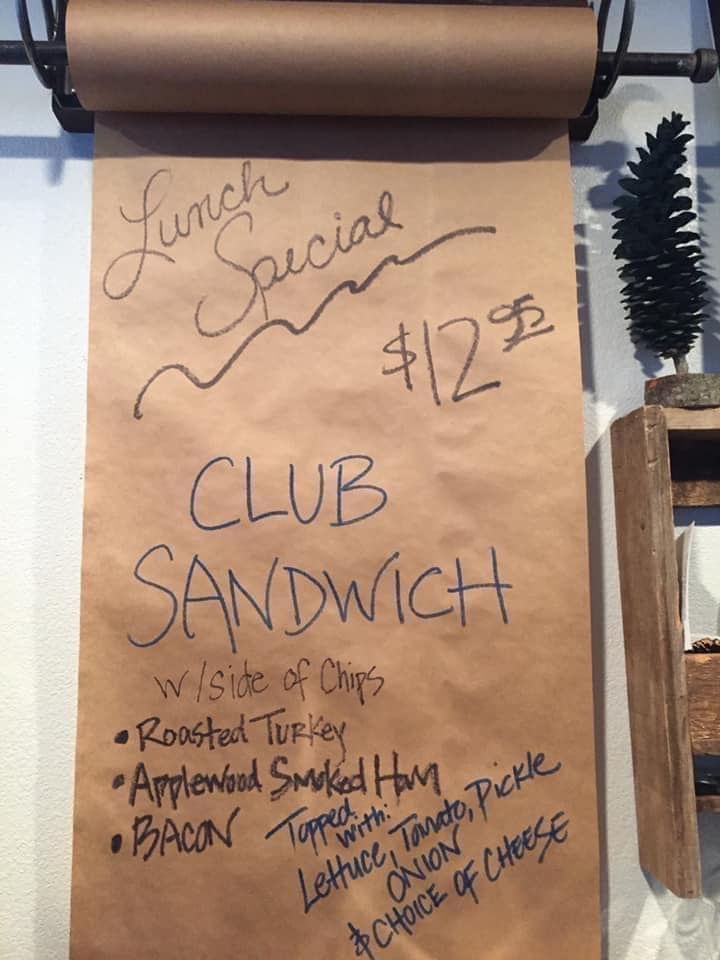 Lunch
Special
$12.95
CLUB
SANDWICH
w/side of Chips
• Roasted Turkey
• Applewood Smoked Ham
• BACON
Topped
with:
Lettuce, Tomato, Pickle
ONION
& CHOICE OF CHEESE